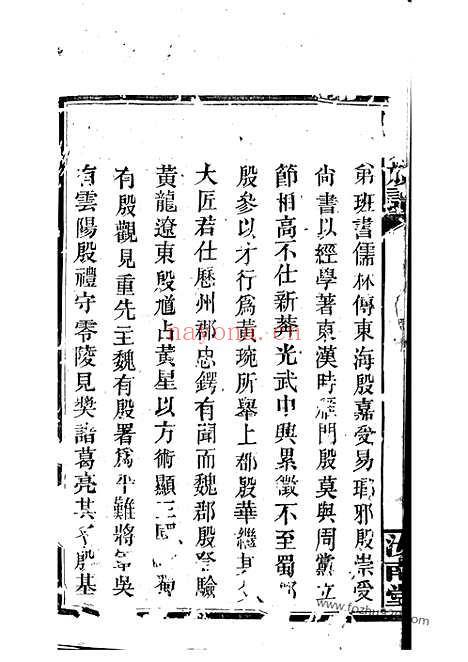 弟班書儒林傳東海殷嘉受易瑯邪殷崇受
尙書以經學著東漢時鴈門殷莫與周黨立
節相高不仕新莽光武中興累徵不至蜀郡
殷參以才行爲黃琬所舉上郡殷華繼其
大匠若仕歷州郡忠鍔有聞而魏郡殷登驗
黃龍遼東殷馗占黃星以方術顯三國蜀
有殷觀見重先主魏有殷署爲平難將軍吳
有雲陽殷禮守零陵見獎諸葛亮其子殷基
nayona.cn
www.fozhu